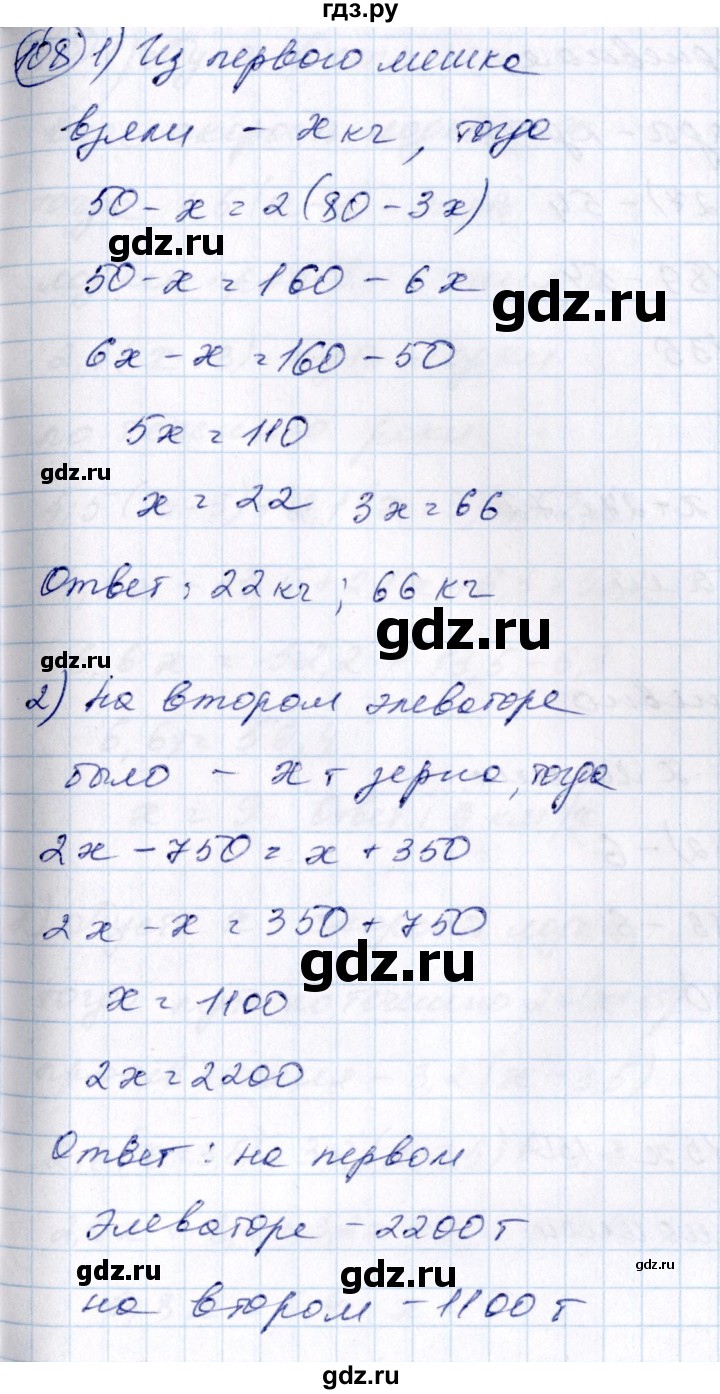 гдз.ру
108 1) Из первого мешка
взяли - x кг, тогда
50 - x = 2(80 - 3x)
gdz.ru
50 - x = 160 - 6x
gdz.ru
6x - x = 160 - 50
5x = 110
gdz.ru
x = 22 3x = 66
Ответ: 22 кг; 66 кг
gdz.ru
gdz.ru
2) На втором элеваторе
было - x т зерна, тогда
2x - 750 = x + 350
2x - x = 350 + 750
gdz.ru
x = 1100
2x = 2200
Ответ: на первом
элеваторе - 2200 т
gdz.ru
gdz.ru
gdz.ru
на втором - 1100 т
gdz.ru